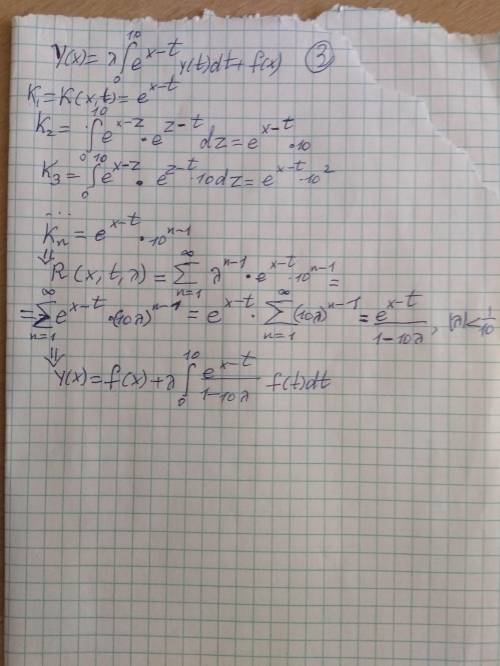 y(x) = λ∫₀¹⁰ e^{x-t} y(t)dt + f(x) ③
K₁ = K(x,t) = e^{x-t}
K₂ = ∫₀¹⁰ e^{x-z} · e^{z-t} dz = e^{x-t} · 10
K₃ = ∫₀¹⁰ e^{x-z} · e^{z-t} · 10dz = e^{x-t} · 10²
...
Kₙ = e^{x-t} · 10^{n-1}
⇓ R(x,t,λ) = ∑_{n=1}^{∞} λ^{n-1} · e^{x-t} · 10^{n-1} =
= ∑_{n=1}^{∞} e^{x-t} · (10λ)^{n-1} = e^{x-t} · ∑_{n=1}^{∞} (10λ)^{n-1} = e^{x-t}/(1-10λ), |λ| < 1/10
⇓
y(x) = f(x) + λ∫₀¹⁰ e^{x-t}/(1-10λ) f(t)dt